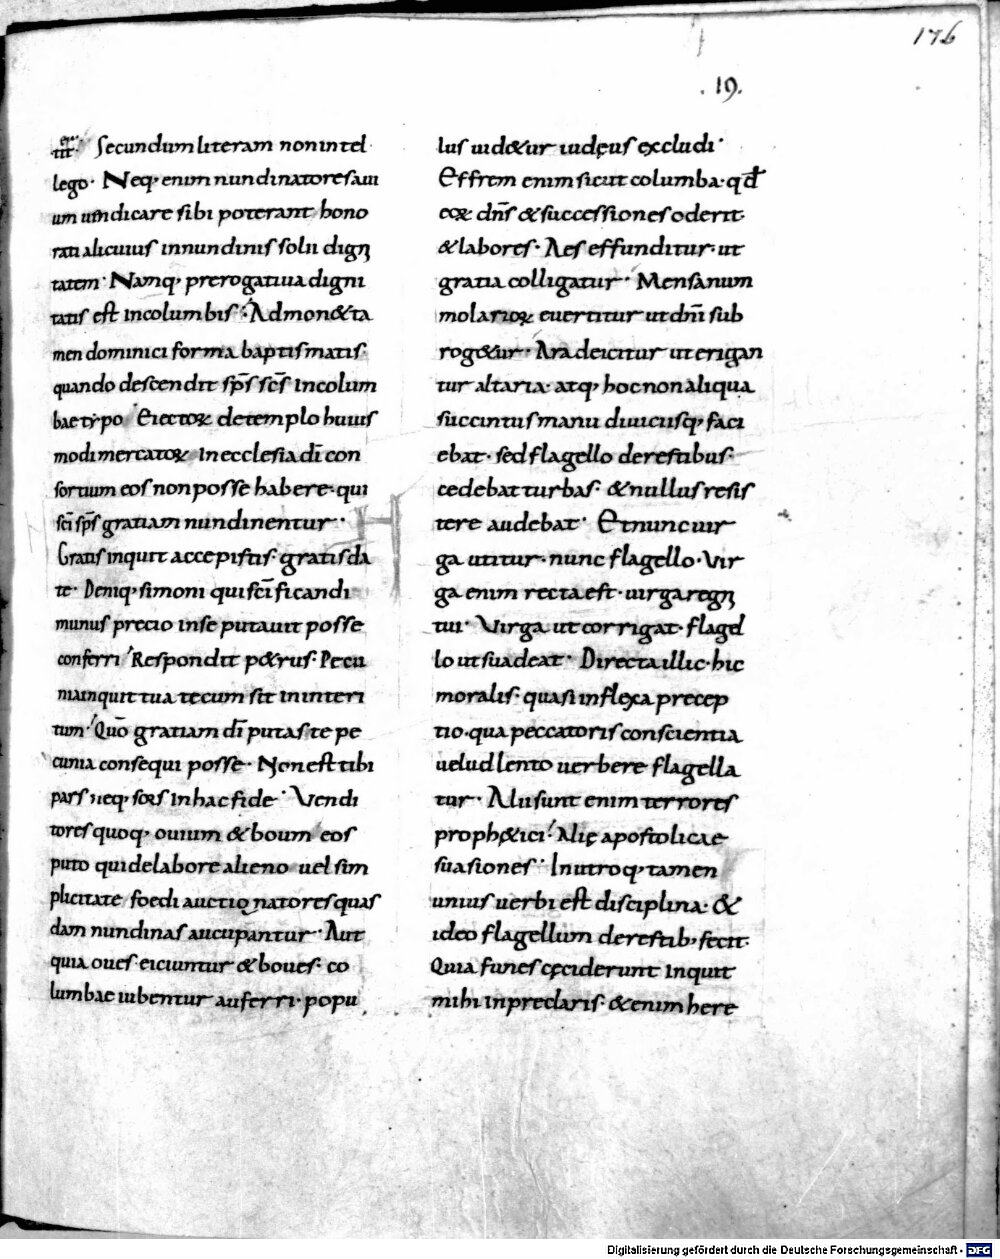 176
. 19.
Secundum literam non intel
lego· Neq; enim nundinatores aui
um uindicare sibi poterant hono
rati alicuius in nundinis solii digni
tatem· Namq; prerogatiua digni
tatis est in columbis· Admon&ta
men dominici forma baptismatis·
quando descendit sp̄s sc̄s in colum
bae typo Eiectorꝝ de templo huius
modi mercatorꝝ in ecclesia dī con
sortium eos non posse habere· qui
sc̄i sp̄s gratiam nundinentur·
Gratis inquit accepistis· gratis da
te· Deniq; simoni qui sc̄ificandi
munus precio in se putauit posse
conferri Respondit p&rus· Pecu
nia inquit tua tecum sit in interi
tum· Quō gratiam dī putas te pe
cunia consequi posse· Non est tibi
pars neq; sors in hac fide· Vendi
tores quoq; ouium & boum eos
puto qui de labore alieno uel sim
plicitate foedi auctionatores quas
dam nundinas aucupantur· Aut
quia oues eiciuntur & boues· co
lumbae iubentur auferri· popu
lus uid&ur iudęus excludi·
Effrem enim sicut columba· qđ
eorꝝ dn̄s & successiones oderit·
& labores· Aes effunditur· ut
gratia colligatur· Mensa num
molariorꝝ euertitur ut dn̄i sub
rog&ur· Ara deicitur ut erigan
tur altaria· atq; hoc non aliqua
succintus manu diuiciisq; faci
ebat· sed flagello de restibus·
cedebat turbas· & nullus resis
tere audebat· Et nunc uir
ga utitur· nunc flagello· Vir
ga enim recta est· uirga regni
tui· Virga ut corrigat· flagel
lo ut suadeat· Directa illic· hic
moralis· quasi inflexa precep
tio· qua peccatoris conscientia
uelud lento uerbere flagella
tur· Alii sunt enim terrores
proph&ici· Alię apostolicae
suasiones· In utroq; tamen
unius uerbi est disciplina· &
ideo flagellum de restib; fecit·
Quia funes cęciderunt inquit
mihi in preclaris· & enim here
Digitalisierung gefördert durch die Deutsche Forschungsgemeinschaft - DFG